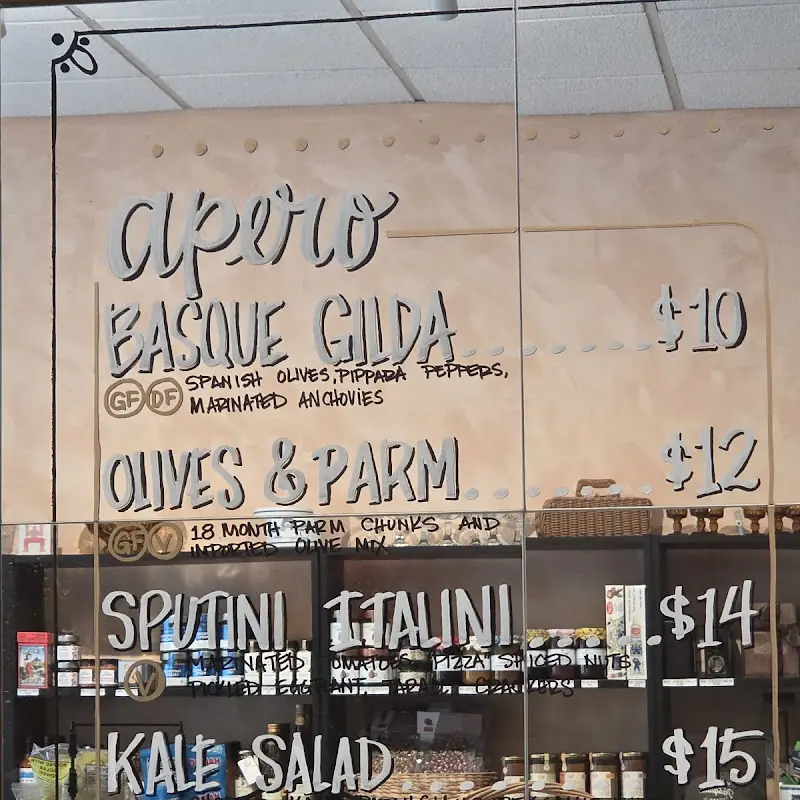 apero
BASQUE GILDA........ $10
GF DF SPANISH OLIVES, PIPPARA PEPPERS,
MARINATED ANCHOVIES
OLIVES & PARM....... $12
GF V 18 MONTH PARM CHUNKS AND
IMPORTED OLIVE MIX
SPUTINI ITALINI..... $14
V MARINATED TOMATOES "PIZZA" SPICED NUTS
PICKLED EGGPLANT, CRACKERS
KALE SALAD $15